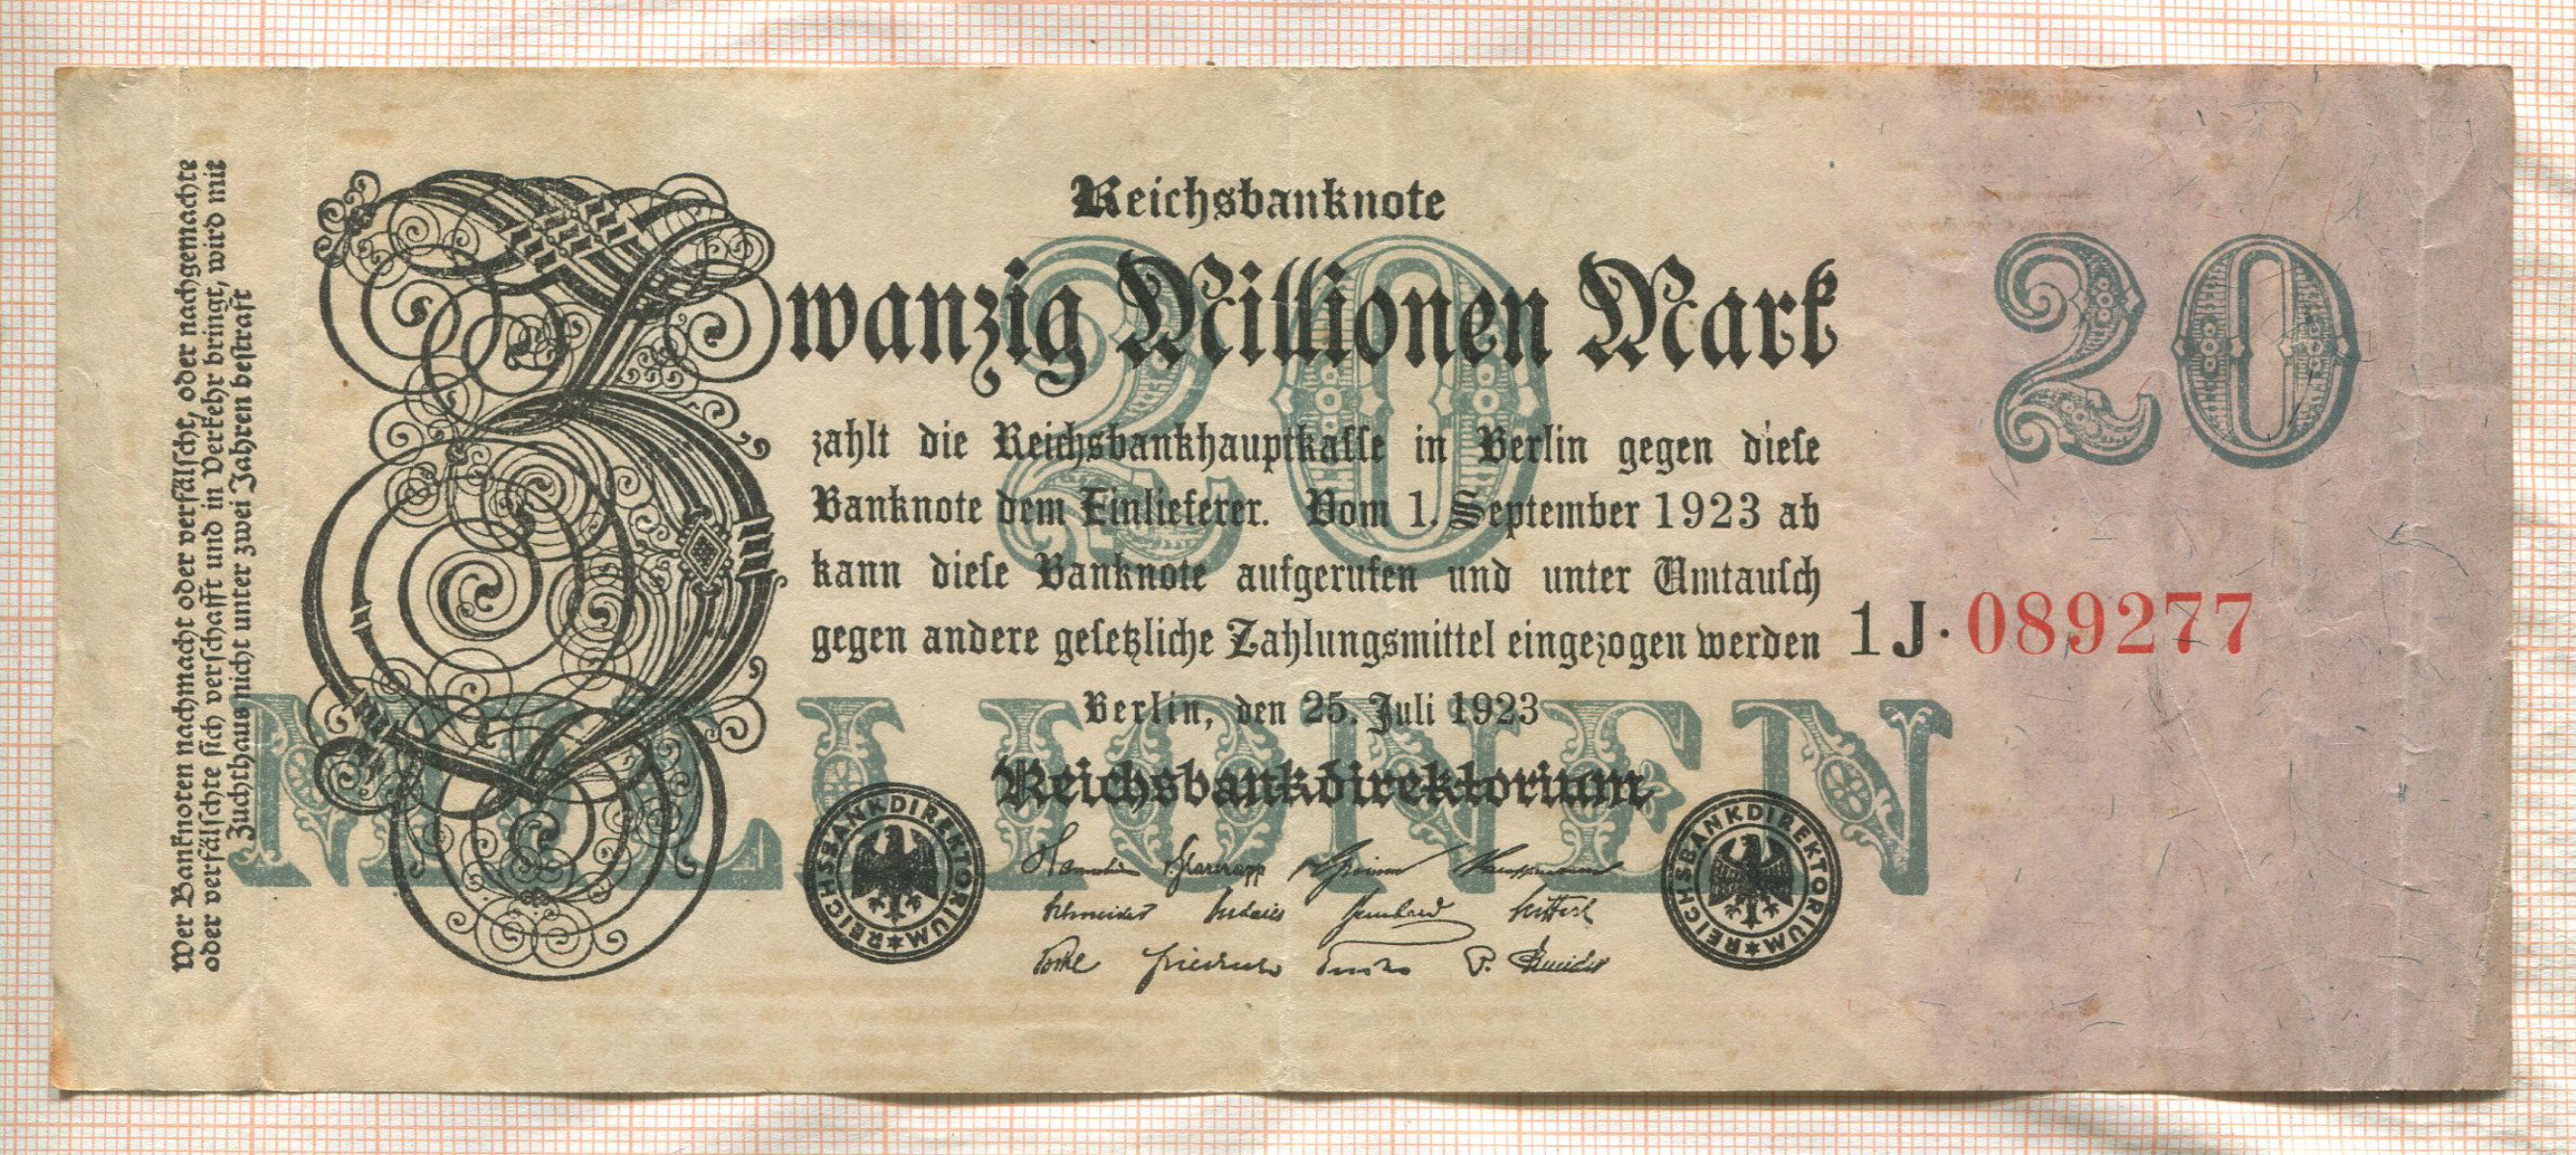 Wer Banknoten nachmacht oder verfälscht, oder nachgemachte
oder verfälschte sich verschafft und in Verkehr bringt, wird mit
Zuchthaus nicht unter zwei Jahren bestraft
Reichsbanknote
20
Zwanzig Millionen Mark
20
zahlt die Reichsbankhauptkasse in Berlin gegen diese
Banknote dem Einlieferer. Vom 1. September 1923 ab
kann diese Banknote aufgerufen und unter Umtausch
gegen andere gesetzliche Zahlungsmittel eingezogen werden
1J·089277
Berlin, den 25. Juli 1923
MILLIONEN
Reichsbankdirektorium
REICHSBANKDIREKTORIUM
REICHSBANKDIREKTORIUM
Schneider
Friedrich
P. Schneider